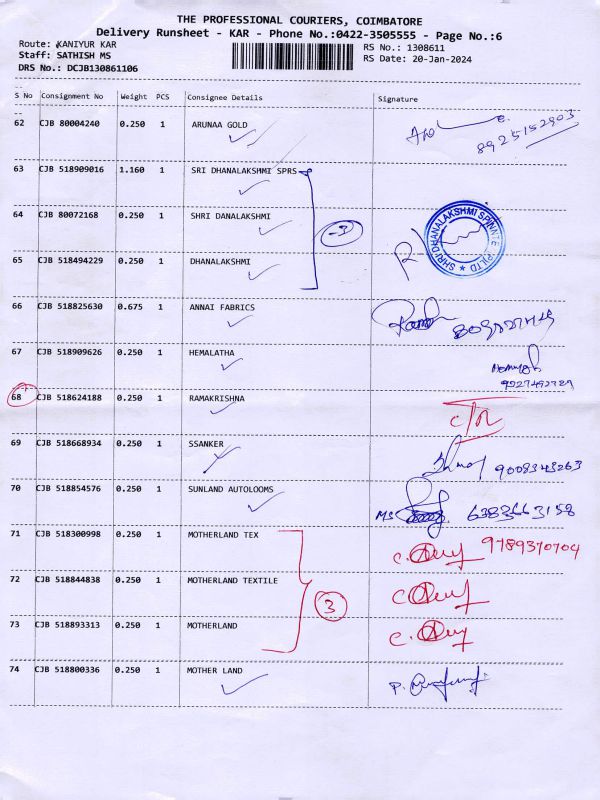 THE PROFESSIONAL COURIERS, COIMBATORE
Delivery Runsheet - KAR - Phone No.:0422-3505555 - Page No.:6
Route: KANIYUR KAR
RS No.: 1308611
Staff: SATHISH MS
RS Date: 20-Jan-2024
DRS No.: DCJB130861106
S No Consignment No Weight PCS Consignee Details Signature
62 CJB 80004240 0.250 1 ARUNAA GOLD 8925152903
63 CJB 518909016 1.160 1 SRI DHANALAKSHMI SPRS
64 CJB 80072168 0.250 1 SHRI DANALAKSHMI
SHRI DHANALAKSHMI
65 CJB 518494229 0.250 1 DHANALAKSHMI
66 CJB 518825630 0.675 1 ANNAI FABRICS
67 CJB 518909626 0.250 1 HEMALATHA
68 CJB 518624188 0.250 1 RAMAKRISHNA C/R
69 CJB 518668934 0.250 1 SSANKER 9008343263
70 CJB 518854576 0.250 1 SUNLAND AUTOLOOMS
71 CJB 518300998 0.250 1 MOTHERLAND TEX 9789370704
72 CJB 518844838 0.250 1 MOTHERLAND TEXTILE
3
73 CJB 518893313 0.250 1 MOTHERLAND
74 CJB 518800336 0.250 1 MOTHER LAND